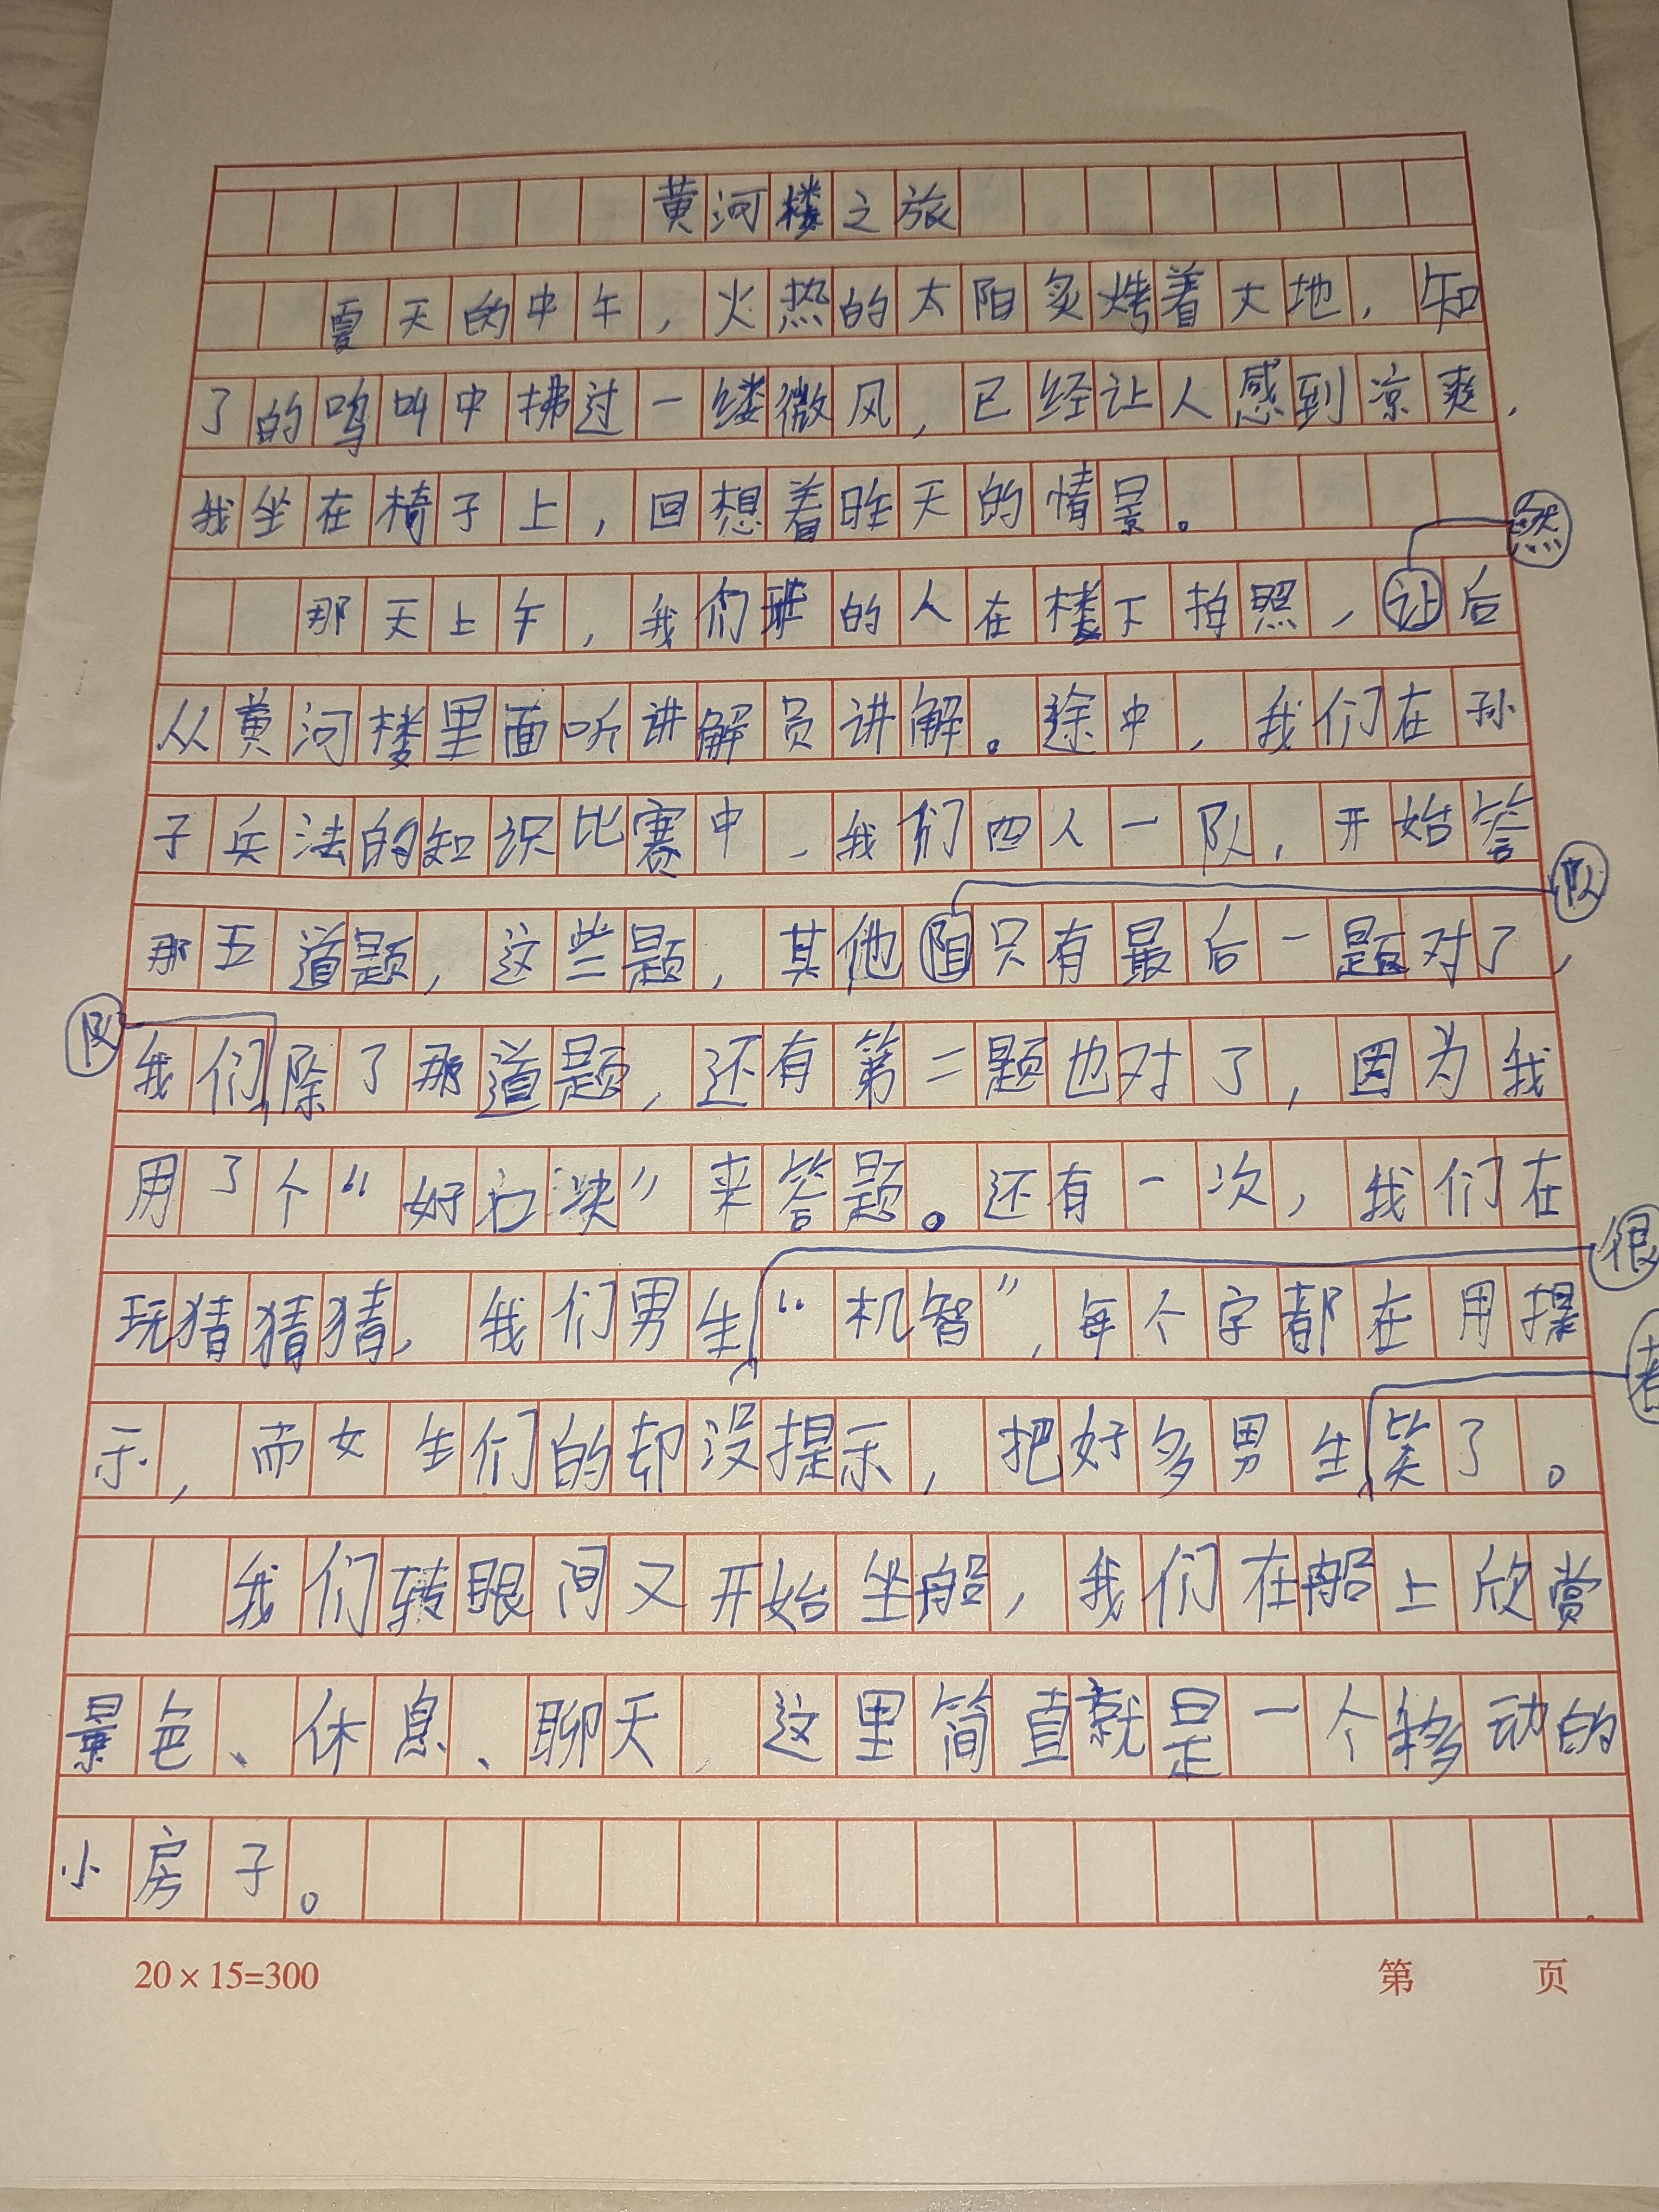 黄河楼之旅
夏天的中午，火热的太阳炙烤着大地，知
了的鸣叫中拂过一缕微风，已经让人感到凉爽，
我坐在椅子上，回想着昨天的情景。
然
那天上午，我们班的人在楼下拍照，让后
从黄河楼里面听讲解员讲解。途中，我们在孙
子兵法的知识比赛中，我们四人一队，开始答
队
那五道题，这些题，其他阻只有最后一题对了，
队
我们除了那道题，还有第二题也对了，因为我
用了个“好口决”来答题。还有一次，我们在
很
玩猜猜猜，我们男生“机智”，每个字都在用提
示，而女生们的却没提示，把好多男生笑了。
我们转眼间又开始坐船，我们在船上欣赏
景色、休息、聊天，这里简直就是一个移动的
小房子。
20×15=300
第 页